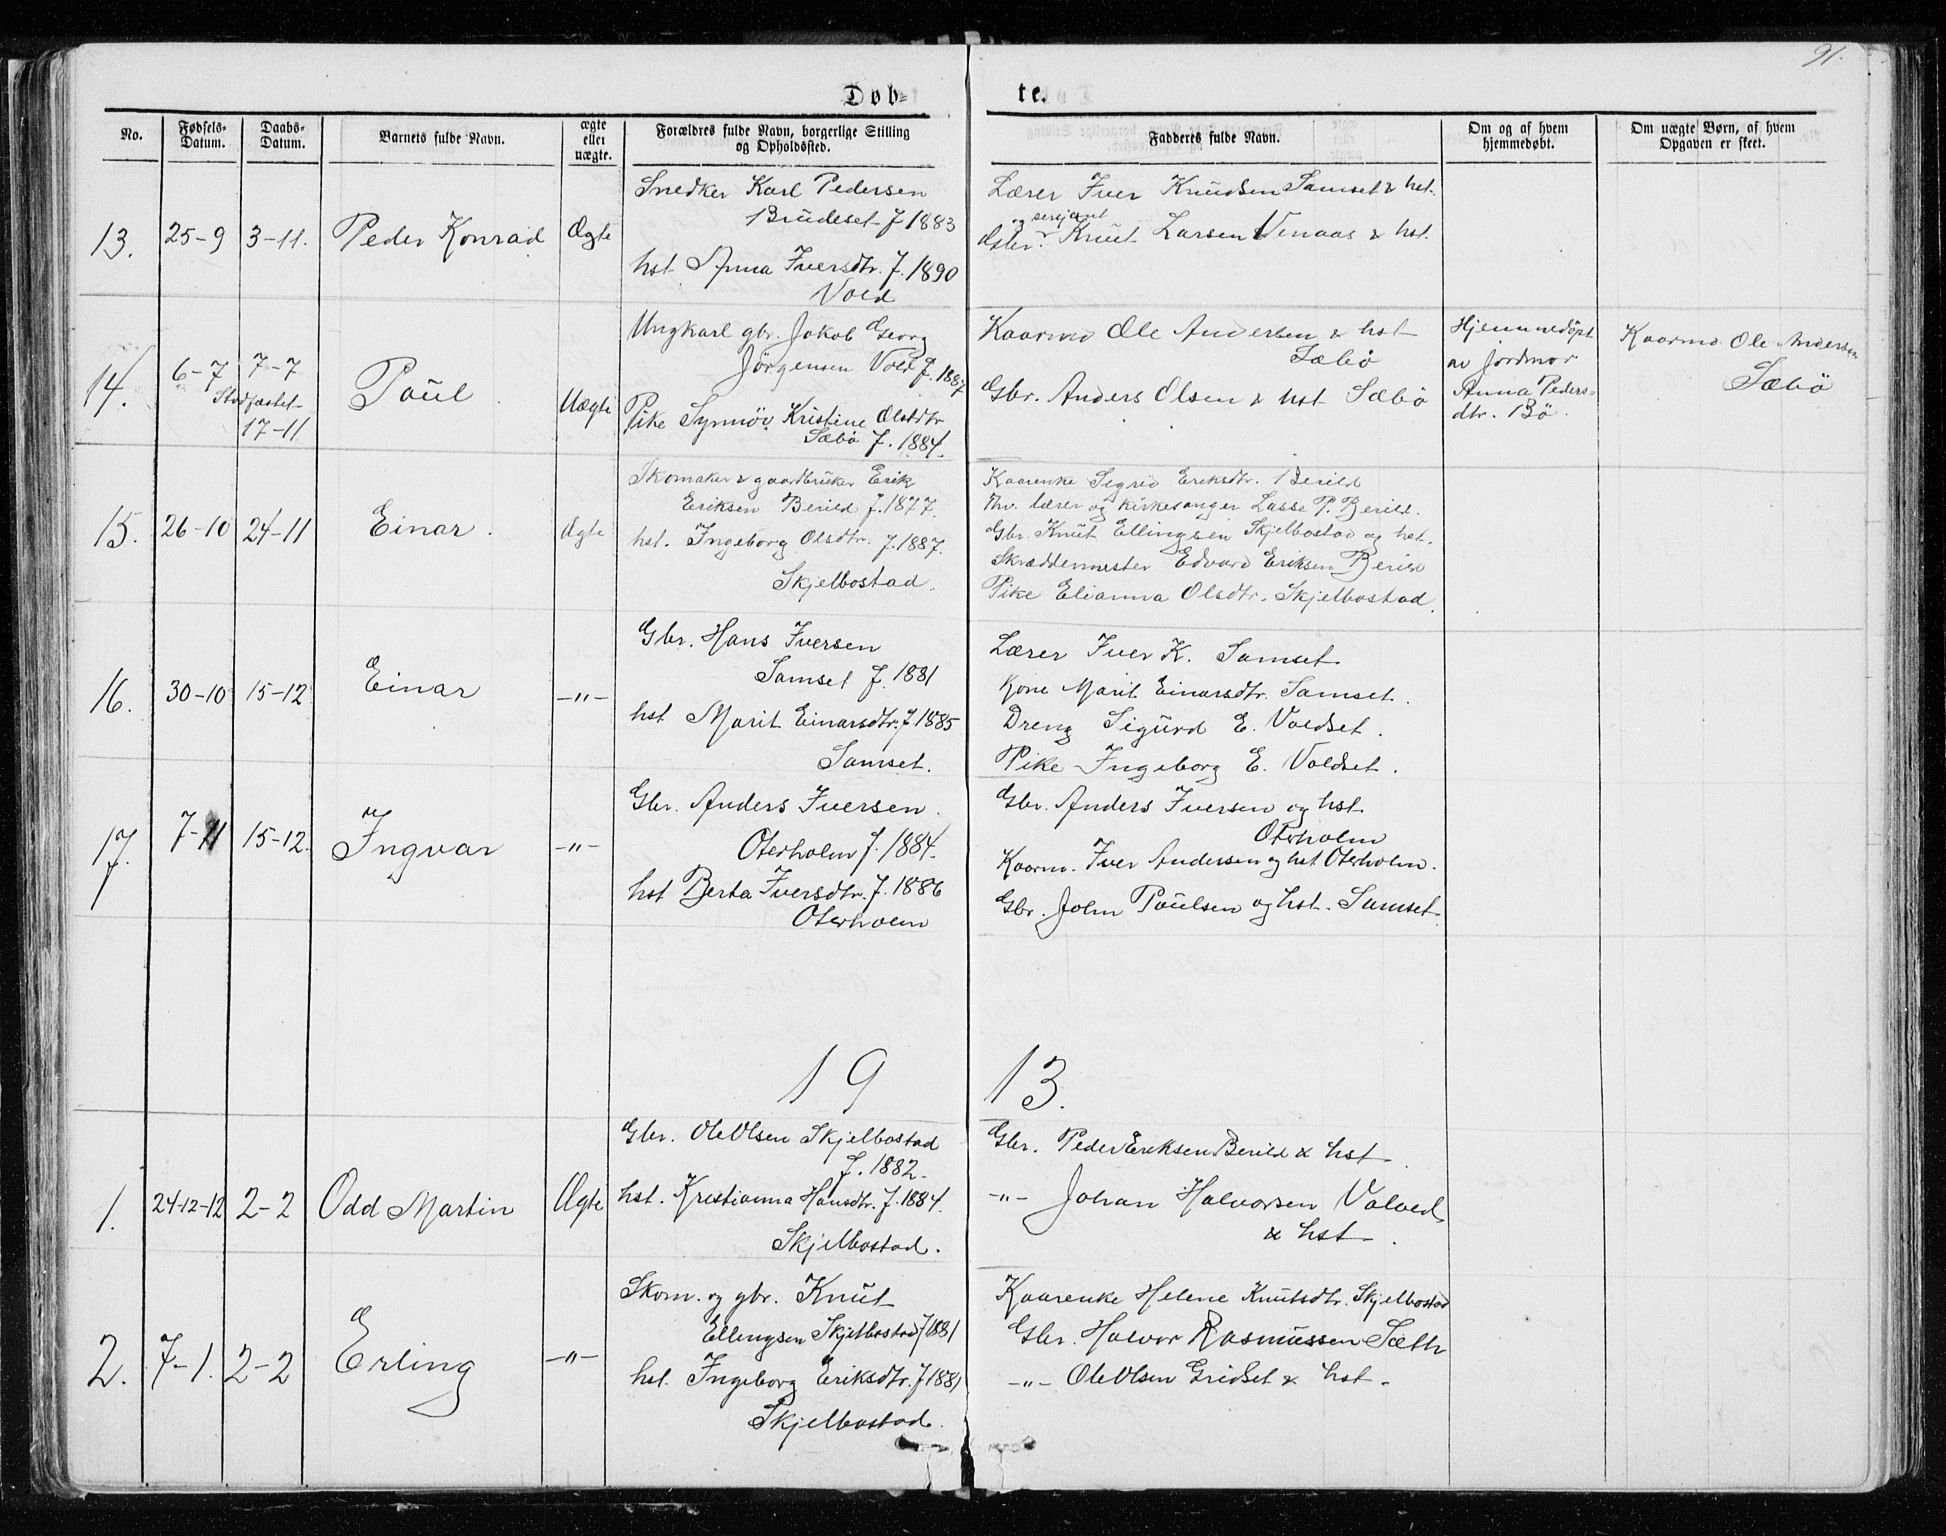 91.
Døb-
te.
No.
Fødsels-
Datum.
Daabs-
Datum.
Barnets fulde Navn.
ægte
eller
uægte.
Forældres fulde Navn, borgerlige Stilling
og Opholdssted.
Fadderes fulde Navn.
Om og af hvem
hjemmedøbt.
Om uægte Børn, af hvem
Opgaven er skeet.
13.
25-9
3-11.
Peder Konrad
Ægte
Snedker Karl Pedersen
Brudeset f 1883
hst. Anna Iversdtr. f. 1890
Vold
Lærer Iver Knudsen Samset & hst.
og serjant
Gbr. Knut Larsen Venaas & hst.
14.
6-7
7-7
Stadfæstet
17-11
Poul
Uægte
Ungkarl gbr. Jakob Georg
Jörgensen Vold f. 1887
Pike Synnöv Kristine Olsdtr
Sæbö f. 1884.
Kaarmd Ole Andersen & hst
Sæbö
Gbr. Anders Olsen & hst Sæbö
Hjemmedöpt
av jordmor
Anna Peders-
dtr. Bö.
Kaarmd Ole Andersen
Sæbö
15.
26-10
24-11
Einar.
Ægte
Skomaker & gaardbruker Erik
Eriksen Berild f. 1877.
hst. Ingeborg Olsdtr. f. 1887.
Skjelbostad.
Kaarenke Sigrid Eriksdtr. Berild
Fhv. lærer og kirkesanger Lasse P. Berild.
Gbr. Knut Ellingsen Skjelbostad og hst.
Skræddermester Edvard Eriksen Berild
Pike Elianna Olsdtr. Skjelbostad.
16.
30-10
15-12
Einar
-"-
Gbr. Hans Iversen
Samset f. 1881
hst Marit Einarsdtr. f. 1885
Samset.
Lærer Iver K. Samset.
Kone Marit Einarsdtr. Samset.
Dreng Sigurd E. Voldset.
Pike Ingeborg E. Voldset.
17.
7-11
15-12.
Ingvar
-"-
Gbr. Anders Iversen
Oterholm f. 1884.
hst Berta Iversdtr. f. 1886
Oterholm
Gbr. Anders Iversen og hst
Oterholm
Kaarm. Iver Andersen og hst Oterholm.
Gbr. John Poulsen og hst. Samset.
19
13.
1.
24-12-12
2-2
Odd Martin
Ægte
Gbr. Ole Olsen Skjelbostad
f. 1882.
hst. Kristianna Hansdtr. f. 1884.
Skjelbostad.
Gbr. Peder Eriksen Berild & hst
-"- Johan Halvorsen Valved
& hst.
2.
7-1.
2-2
Erling
-"-
Skom. og gbr. Knut
Ellingsen Skjelbostad f 1881
hst. Ingeborg Eriksdtr. f 1881
Skjelbostad.
Kaarenke Helene Knutsdtr. Skjelbostad
Gbr. Halvor Rasmussen Sæth
-"- Ole Olsen Gridset & hst.